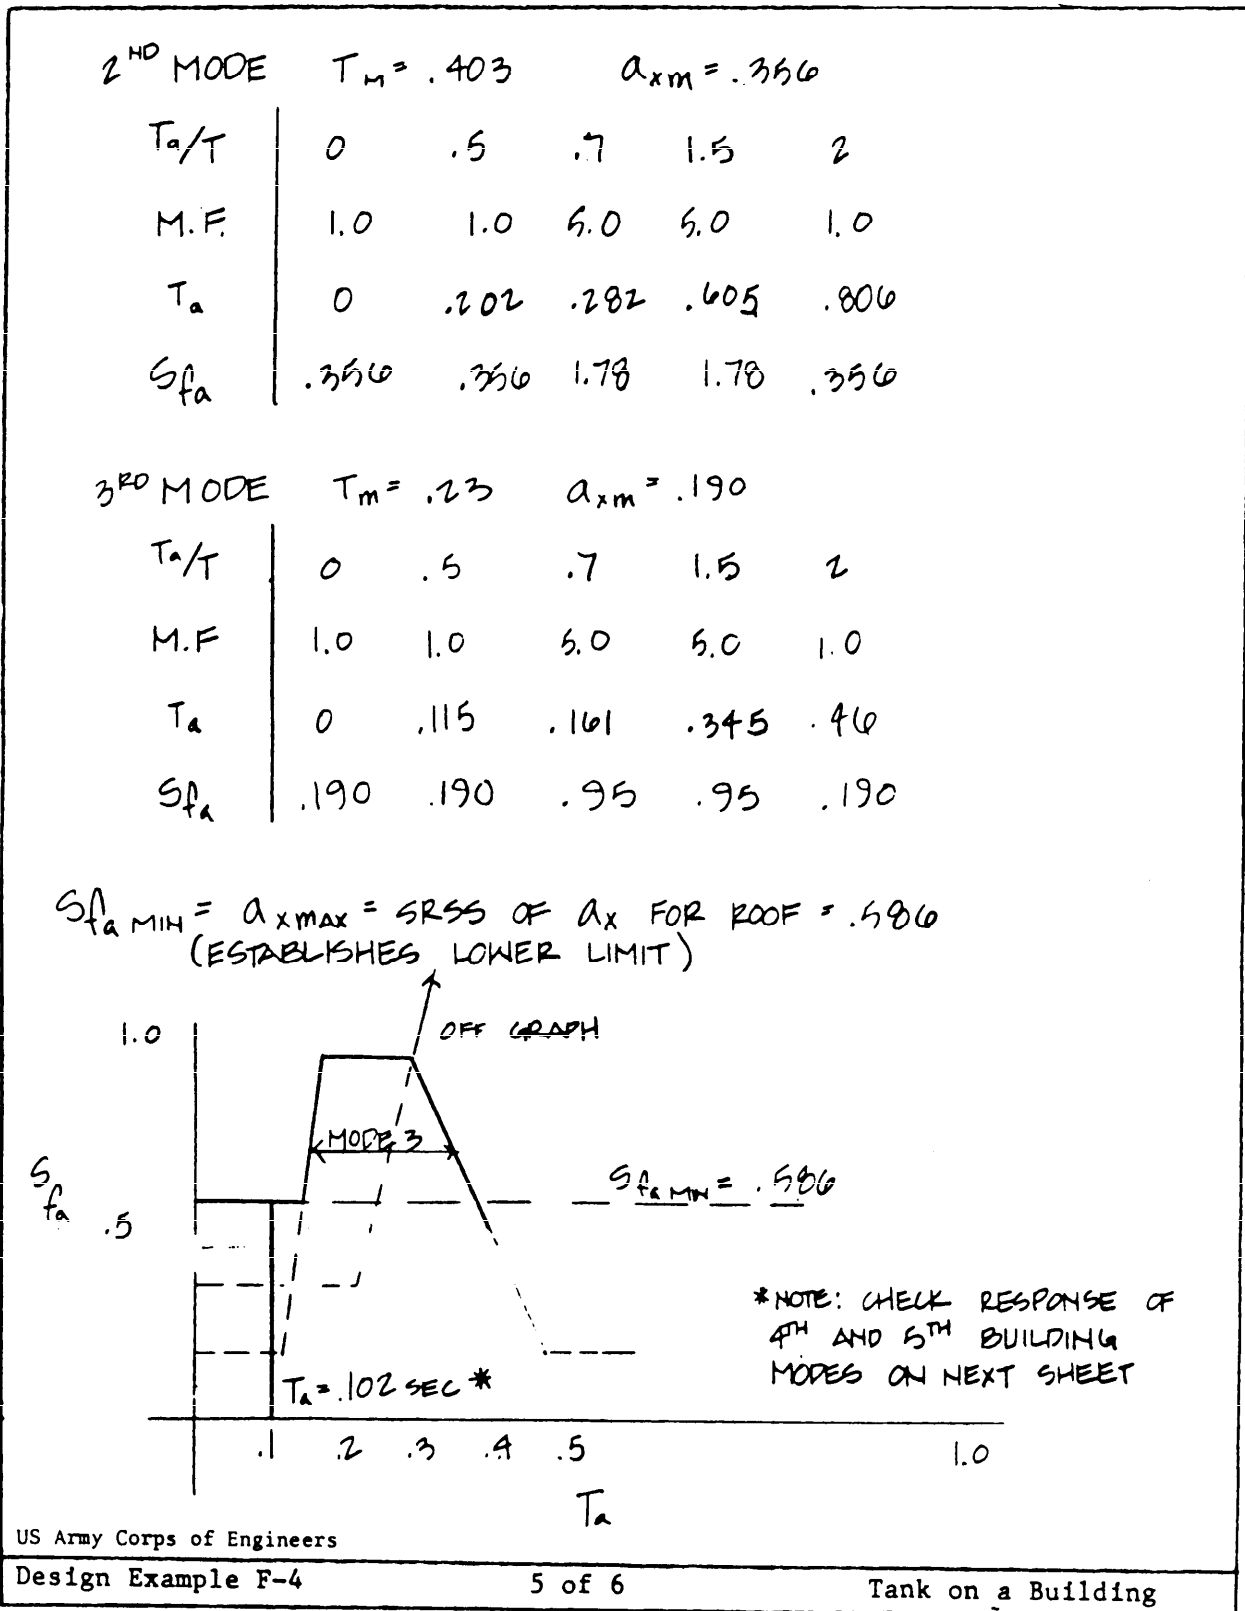 2ND MODE Tm = .403 axm = .356
Ta/T 0 .5 .7 1.5 2
M.F. 1.0 1.0 5.0 5.0 1.0
Ta 0 .202 .282 .605 .806
Sfa .356 .356 1.78 1.78 .356
3RD MODE Tm = .23 axm = .190
Ta/T 0 .5 .7 1.5 2
M.F 1.0 1.0 5.0 5.0 1.0
Ta 0 .115 .161 .345 .46
Sfa .190 .190 .95 .95 .190
Sfa MIN = ax MAX = SRSS OF ax FOR ROOF = .586
(ESTABLISHES LOWER LIMIT)
1.0
OFF GRAPH
MODE 3
Sfa
Sfa MIN = .586
.5
*NOTE: CHECK RESPONSE OF
4TH AND 5TH BUILDING
MODES ON NEXT SHEET
Ta = .102 SEC *
.1 .2 .3 .4 .5 1.0
Ta
US Army Corps of Engineers
Design Example F-4 5 of 6 Tank on a Building